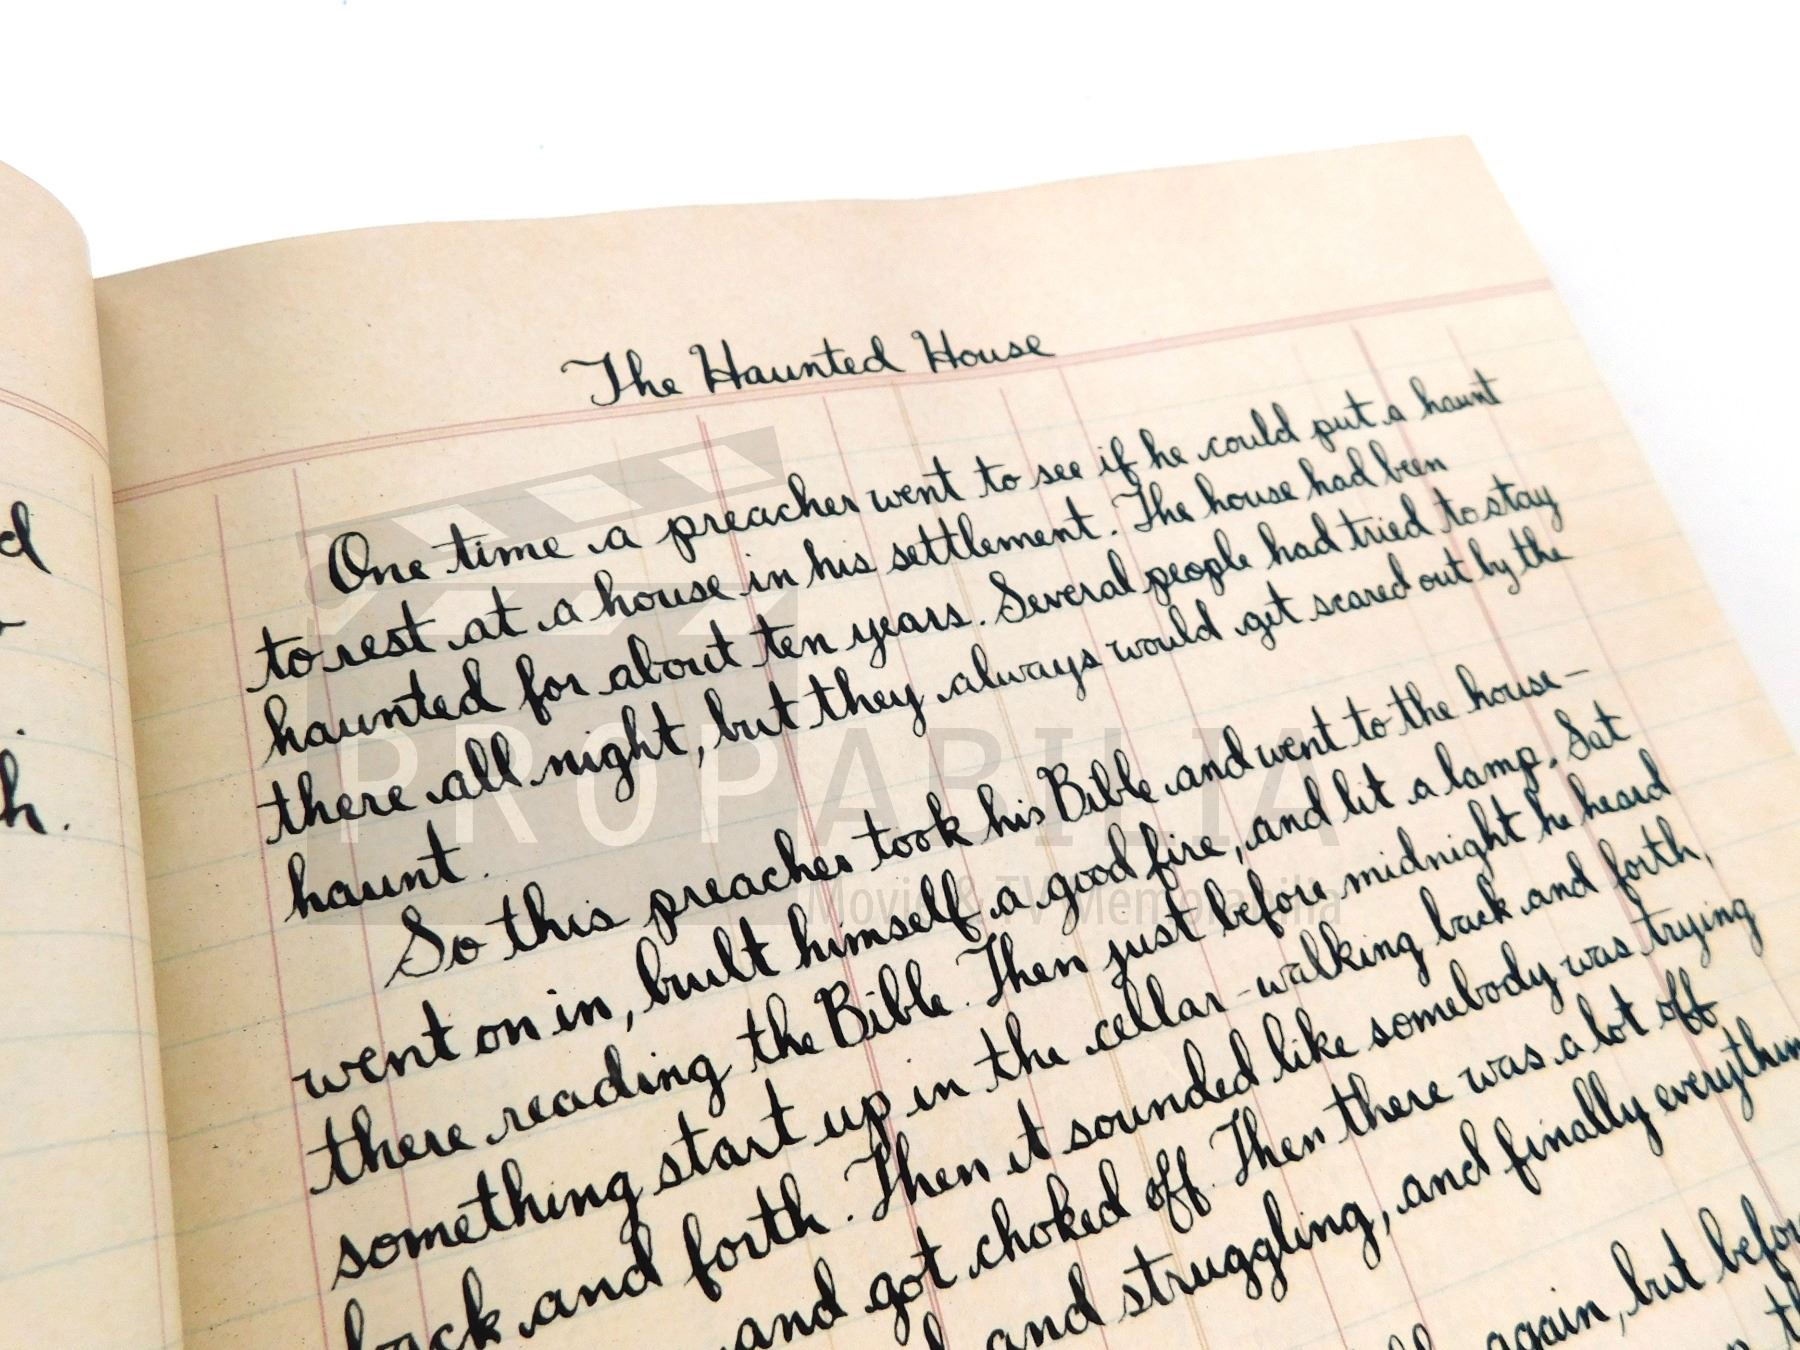 d
h.
The Haunted House
One time a preacher went to see if he could put a haunt
to rest at a house in his settlement. The house had been
haunted for about ten years. Several people had tried to stay
there all night, but they always would get scared out by the
haunt.
So this preacher took his Bible and went to the house—
went on in, built himself a good fire, and lit a lamp. Sat
there reading the Bible. Then just before midnight he heard
something start up in the cellar-walking back and forth,
back and forth. Then it sounded like somebody was trying
and got choked off. Then there was a lot off
and struggling, and finally everythin
again, but befor
PROPABILIA
Movie & TV Memorabilia